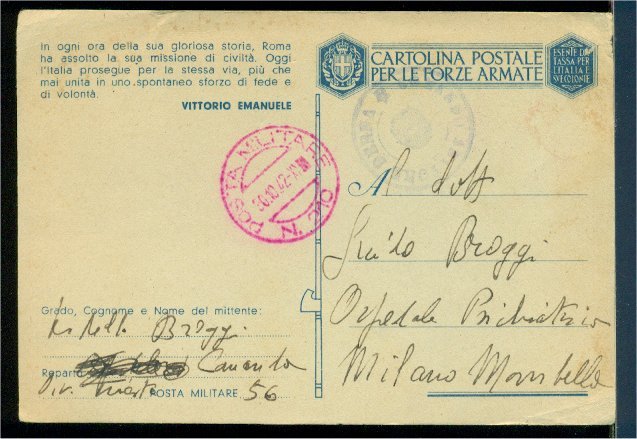 In ogni ora della sua gloriosa storia, Roma
ha assolto la sua missione di civiltà. Oggi
l'Italia prosegue per la stessa via, più che
mai unita in uno spontaneo sforzo di fede e
di volontà.
VITTORIO EMANUELE
CARTOLINA POSTALE
PER LE FORZE ARMATE
ESENTE DA
TASSA PER
L'ITALIA E
SUE COLONIE
POSTA MILITARE
30.10.42
N.
Al Dott
Broggi
Ospedale Psichiatrico
Milano Mombello
Grado, Cognome e Nome del mittente:
Broggi
Reparto Comando
Div. POSTA MILITARE 56